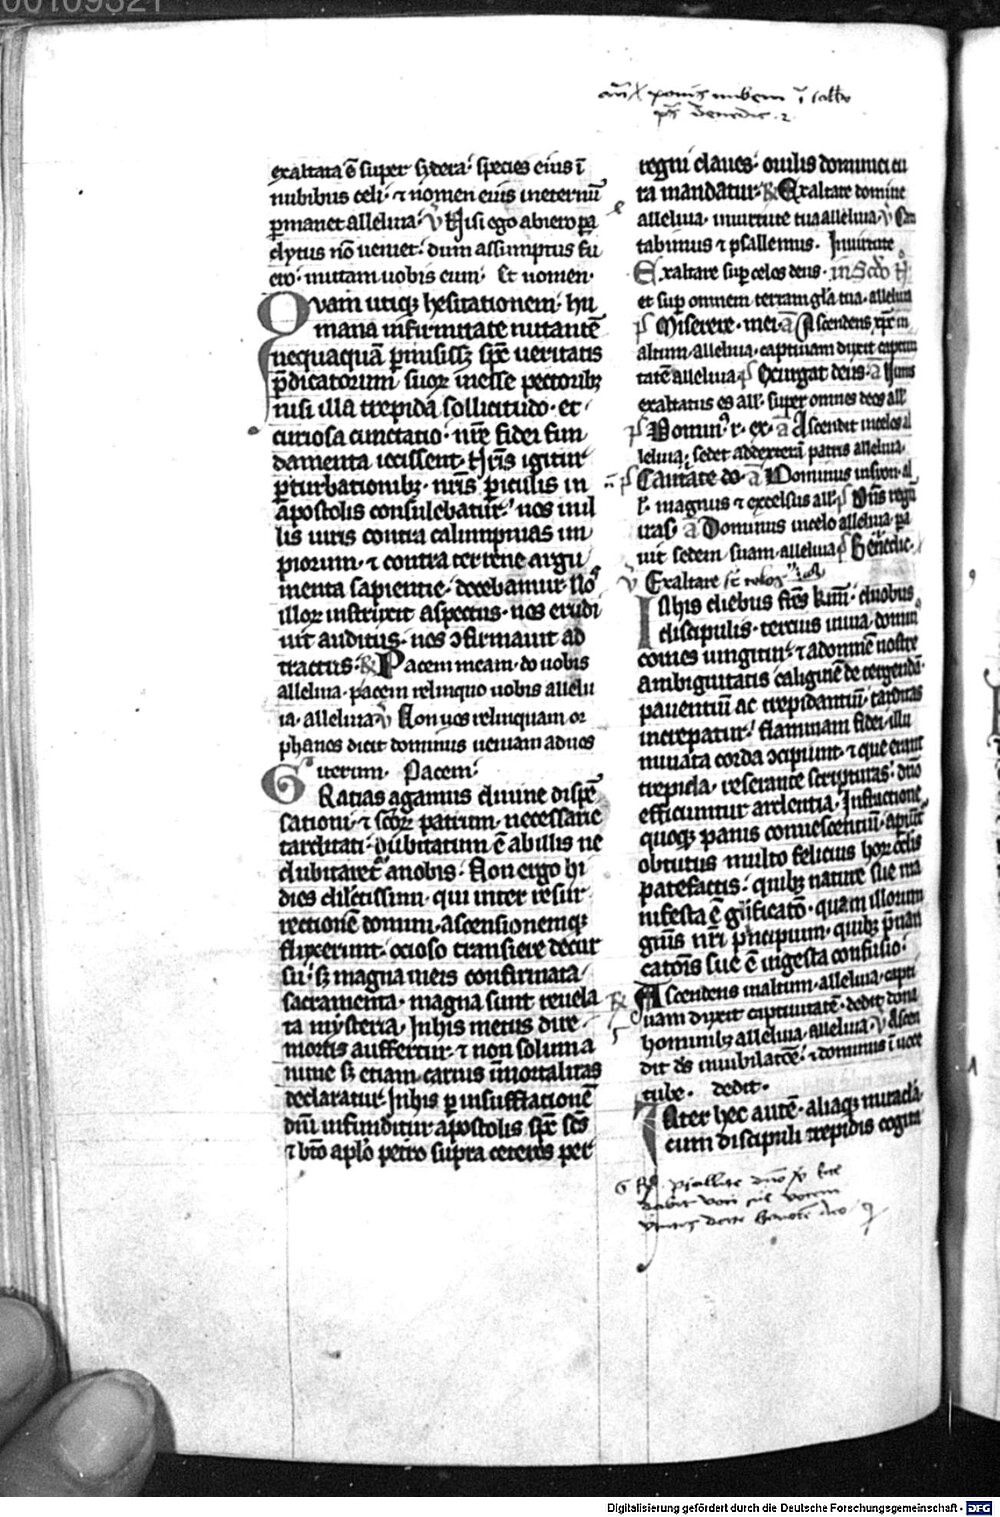 00109321
exaltata ē super sydera· species eius ī
nubibus celi· ⁊ nomen eius ineternū
ꝑmanet alleluia· ℣ Nisi ego abiero pa
clytus nō ueniet· dum assumptus fu
ero· mittam uobis eum· Et nomen·
Quam utiqꝫ hesitationem· hu
mana infirmitate nutantē
nequaquā ꝑmisissꝫ spc̄ ueritatis
p̄dicatorum suoꝝ inesse pectoribꝫ
nisi illa trepida sollicitudo· et
curiosa cunctatio· nr̄e fidei fun
damenta iecissent· Nr̄is igitur
ꝑturbationibꝫ· nr̄is ꝑiculis in
apostolis consulebatur· nos in il
lis uiris contra calumpnias im
piorum· ⁊ contra terrene argu
menta sapientie· docebamur Nos
illoꝝ instruxit aspectus· nos erudi
uit auditus· nos ↄfirmauit ad
tractus· ℟ Pacem meam· do uobis
alleluia· pacem relinquo uobis allelu
ia· alleluia ℣ Non uos relinquam or
phanos dicit dominus ueniam ad uos
iterum· Pacem·
Gratias agamus diuine dispē
sationi· ⁊ sc̄oꝝ patrum· necessarie
tarditati· dubitatum ē ab illis ne
dubitaret᷑ anobis· Non ergo hi
dies dilectissimi· qui inter resur
rectionē domini· ascensionemqꝫ
fluxerunt· ocioso transiere decur
su· sꝫ magna in eis confirmata
sacramenta· magna sunt reuela
ta mysteria· In his metus dire
mortis auffertur· ⁊ non solum a
nime sꝫ etiam carnis īmortalitas
declaratur· In his ꝑ insufflationē
dn̄i infunditur apostolis spc̄ scs̄
⁊ bt̄o apl̄o petro supra ceteros per
regni claues· ouilis dominici cu
ra mandatur· ℟ Exaltare domine
alleluia· in uirtute tua alleluia· ℣ Can
tabimus ⁊ psallemus· In uirtute
Exaltare suꝑ celos deus· in Scdo N̄
et suꝑ omnem terram gl̄a tua· alleluia
ps Miserere· mei· a Ascendens xpc̄ in
altum· alleluia· captiuam duxit captiui
tatē alleluia ps Exurgat deus· a Nimis
exaltatus es all· super omnes deos all
ps Domin᷑ r· ex· a Ascendit in celos al
leluia· sedet ad dexterā patris alleluia·
ps Cantate do· a Dominus in syon· al
l· magnus ⁊ excelsus all· ps Dn̄s regn
uras· a Dominus in celo alleluia· pa
uit sedem suam· alleluia ps Benedic·
℣ Exaltare
In his diebus frēs kmī· duobus
discipulis· tercius in uia· domin᷑
comes iungitur· ⁊ ad omnē nostre
ambiguitatis caliginē detergendā·
pauentiū ac trepidantiū· tarditas
increpatur· flammam fidei· illu
minata corda ↄcipiunt· ⁊ que erant
trepida· reserante scripturas· dn̄o
efficiuntur ardentia· In fractione
quoqꝫ panis conuescentiū· aperiūt᷑
obtutus multo felicius hoꝝ oc̄lis
patefactis· quibꝫ nature sue ma
nifesta ē gl̄ificatō· quam illorum
gn̄is nr̄i prīcipum· quibꝫ p̄uari
catōis sue ē ingesta confusio·
℟ Ascendens in altum· alleluia· capti
uam duxit captiuitatē· dedit dona
hominibꝫ alleluia· alleluia· ℣ Ascen
dit ds̄ in iubilatōe· ⁊ dominus ī uoce
tube· dedit·
Inter hec autē· aliaqꝫ miracla·
cum discipuli trepidis cogita
Digitalisierung gefördert durch die Deutsche Forschungsgemeinschaft - DFG